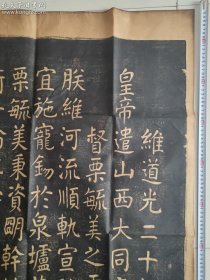 維道光二十
皇帝遣山西大同
督栗毓美之
朕維河流順軌宣
宜施寵錫於泉壚
栗毓美秉資明幹